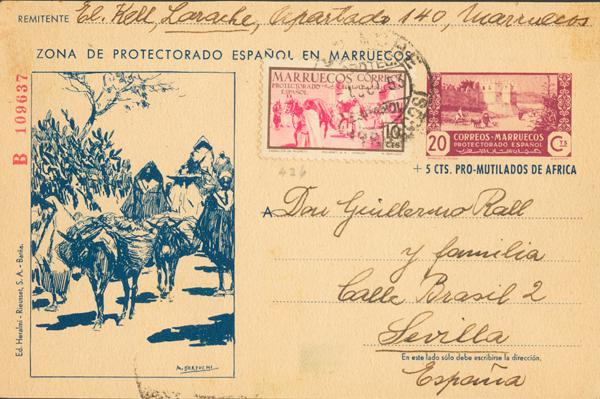 REMITENTE El. Rell, Larache, Apartado 140, Marruecos
ZONA DE PROTECTORADO ESPAÑOL EN MARRUECOS
B 109637
MARRUECOS CORREOS
PROTECTORADO ESPAÑOL
10 CTS
20 CORREOS-MARRUECOS CTS
PROTECTORADO ESPAÑOL
426
+ 5 CTS. PRO-MUTILADOS DE AFRICA
A Don Guillermo Rall
y familia
Calle Brasil 2
Sevilla
En este lado sólo debe escribirse la dirección.
España
Ed. Heralmi - Rieusset, S. A. - Barna.
M. BERTUCHI